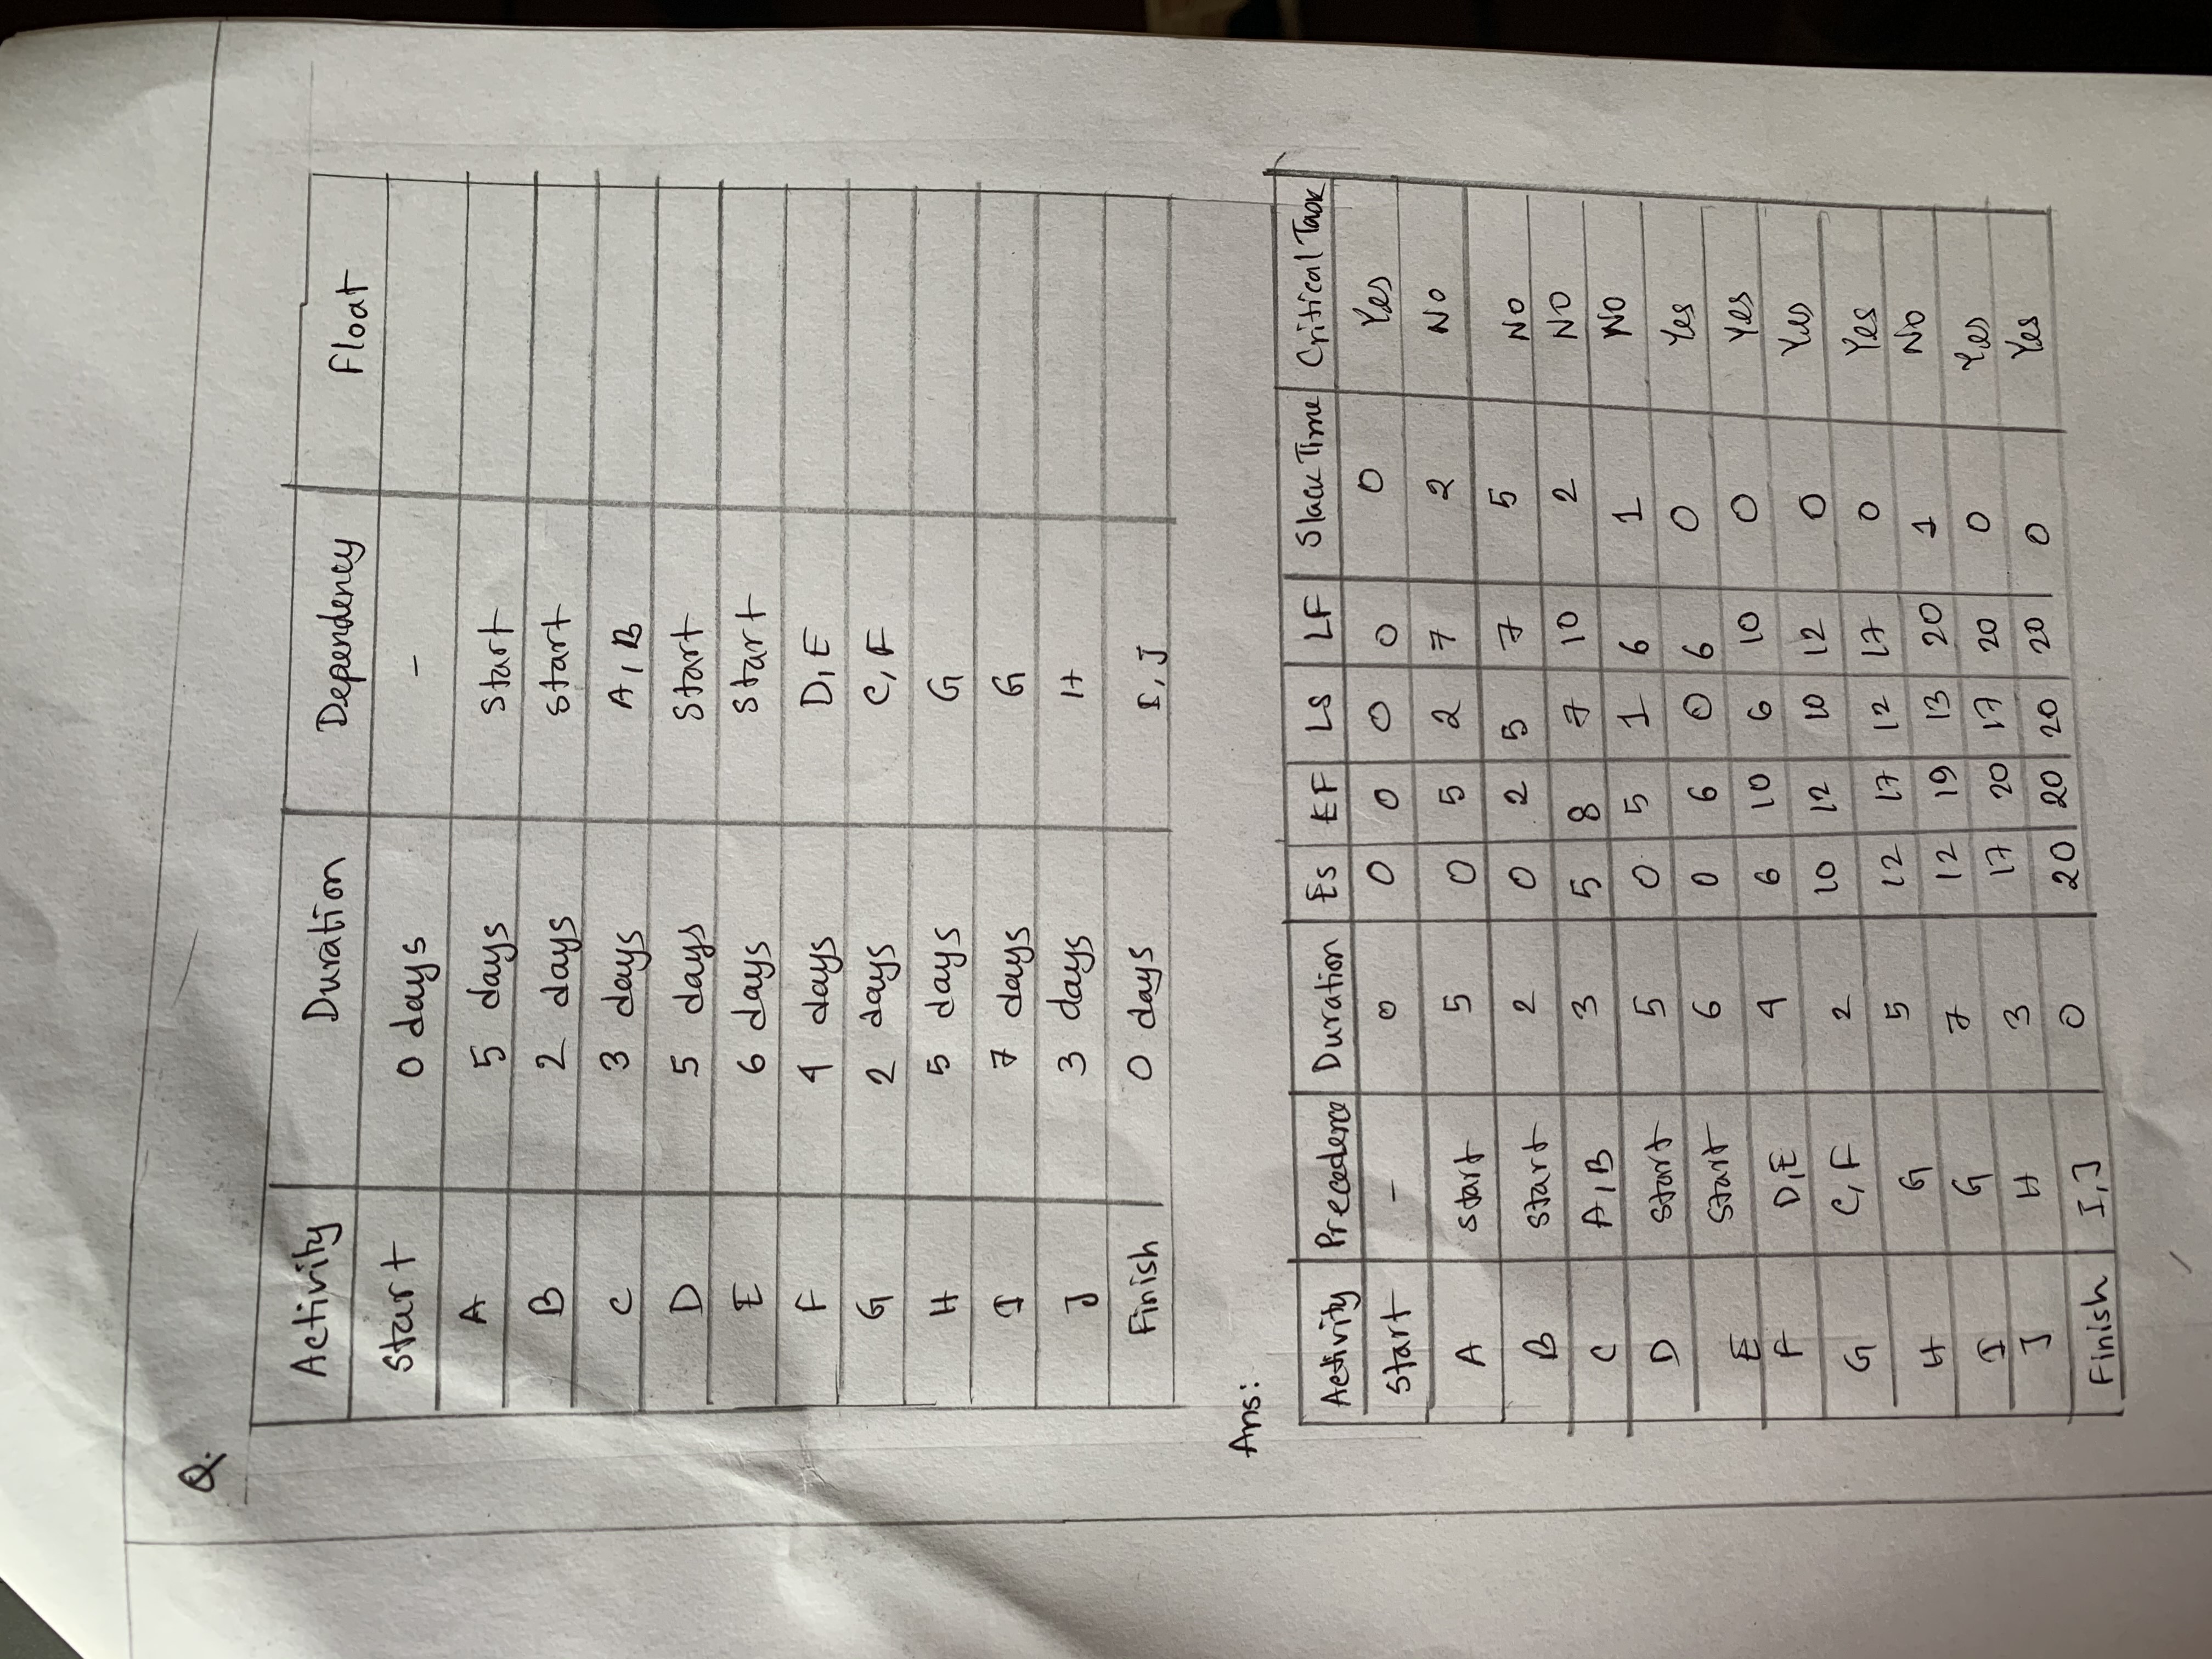 Q.
Activity Duration Dependency Float
Start 0 days -
A 5 days Start
B 2 days Start
C 3 days A, B
D 5 days Start
E 6 days Start
F 4 days D, E
G 2 days C, F
H 5 days G
I 7 days G
J 3 days H
Finish 0 days I, J
Ans:
Activity Precedence Duration Es EF LS LF Slack Time Critical Task
Start - 0 0 0 0 0 0 Yes
A Start 5 0 5 2 7 2 No
B Start 2 0 2 5 7 5 No
C A, B 3 5 8 7 10 2 No
D Start 5 0 5 1 6 1 No
E Start 6 0 6 0 6 0 Yes
F D, E 4 6 10 6 10 0 Yes
G C, F 2 10 12 10 12 0 Yes
H G 5 12 17 12 17 0 Yes
I G 7 12 19 13 20 1 No
J H 3 17 20 17 20 0 Yes
Finish I, J 0 20 20 20 20 0 Yes